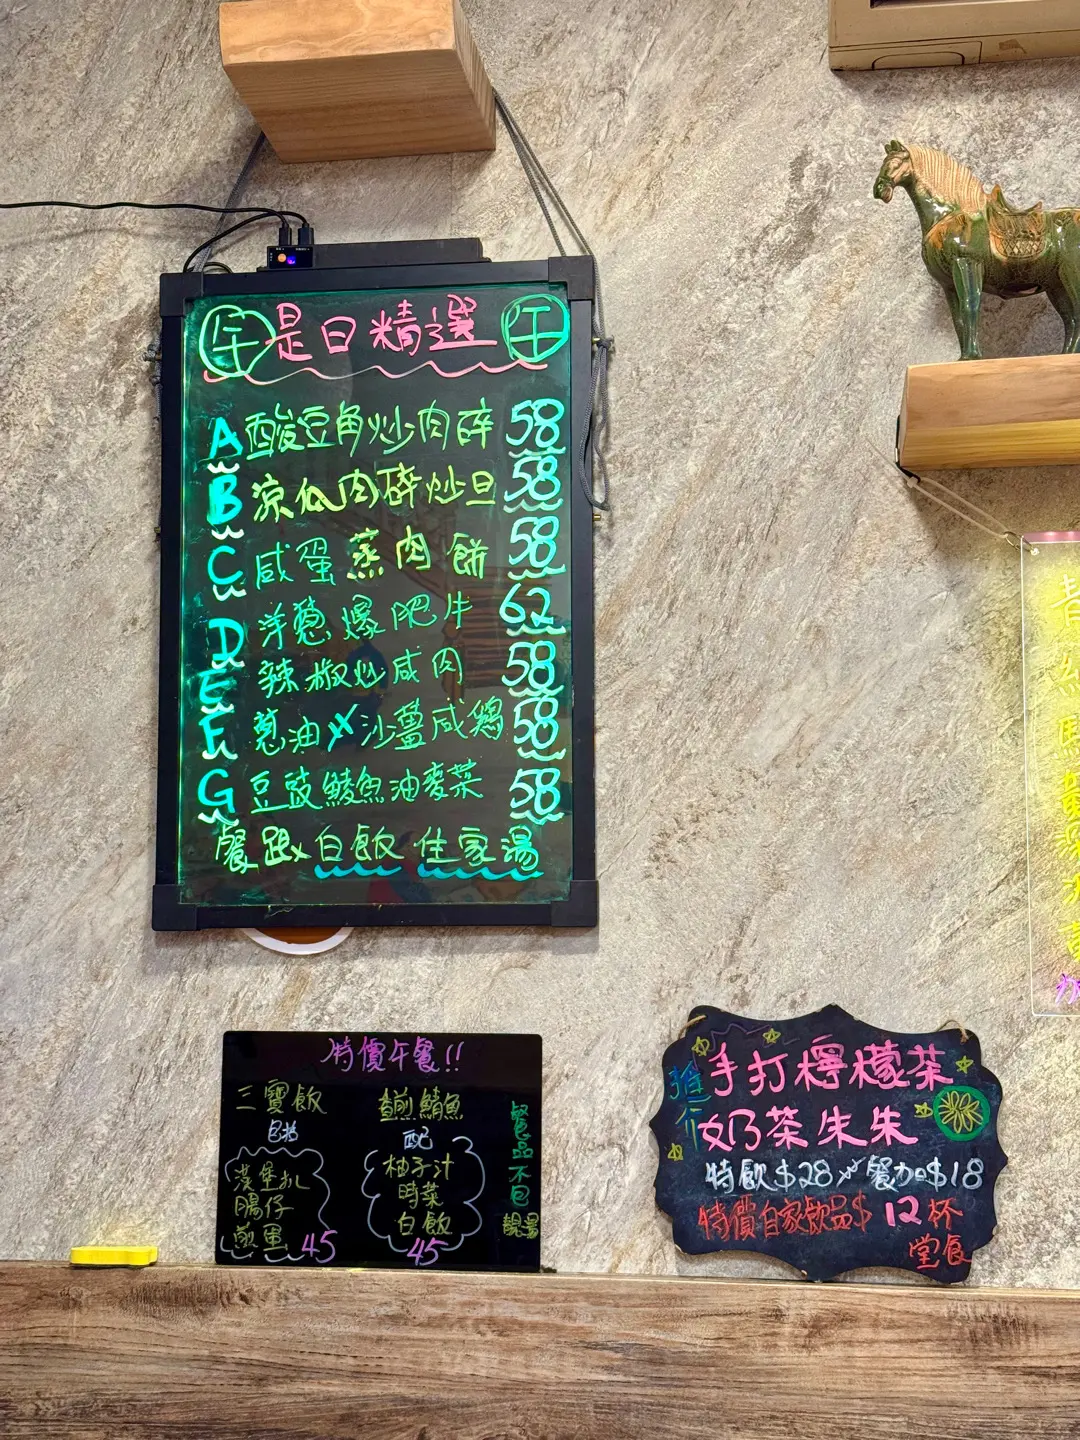 午 是日精選 午
A 酸豆角炒肉碎 58
B 凉瓜肉碎炒旦 58
C 咸蛋蒸肉餅 58
D 洋葱爆肥牛 62
E 辣椒炒咸肉 58
F 葱油沙薑咸鷄 58
G 豆豉鯪魚油麥菜 58
餐跟 白飯 住家湯
特價午餐!!
三寶飯
包括
漢堡扒
腸仔
煎蛋 45
煎鯖魚
配
柚子汁
時菜
白飯
45
餐品不包
手打檸檬茶
推介
奶茶朱朱
特飲$28 餐加$18
特價自家飲品$12杯
堂食